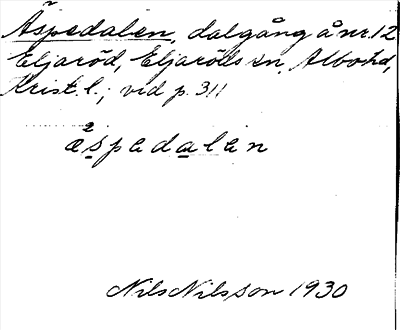 Äspedalen, dalgång å nr. 12
Eljaröd, Eljaröds sn, Albo hd,
Krist. l.; vid p. 311
ä²spedalen
Nils Nilsson 1930